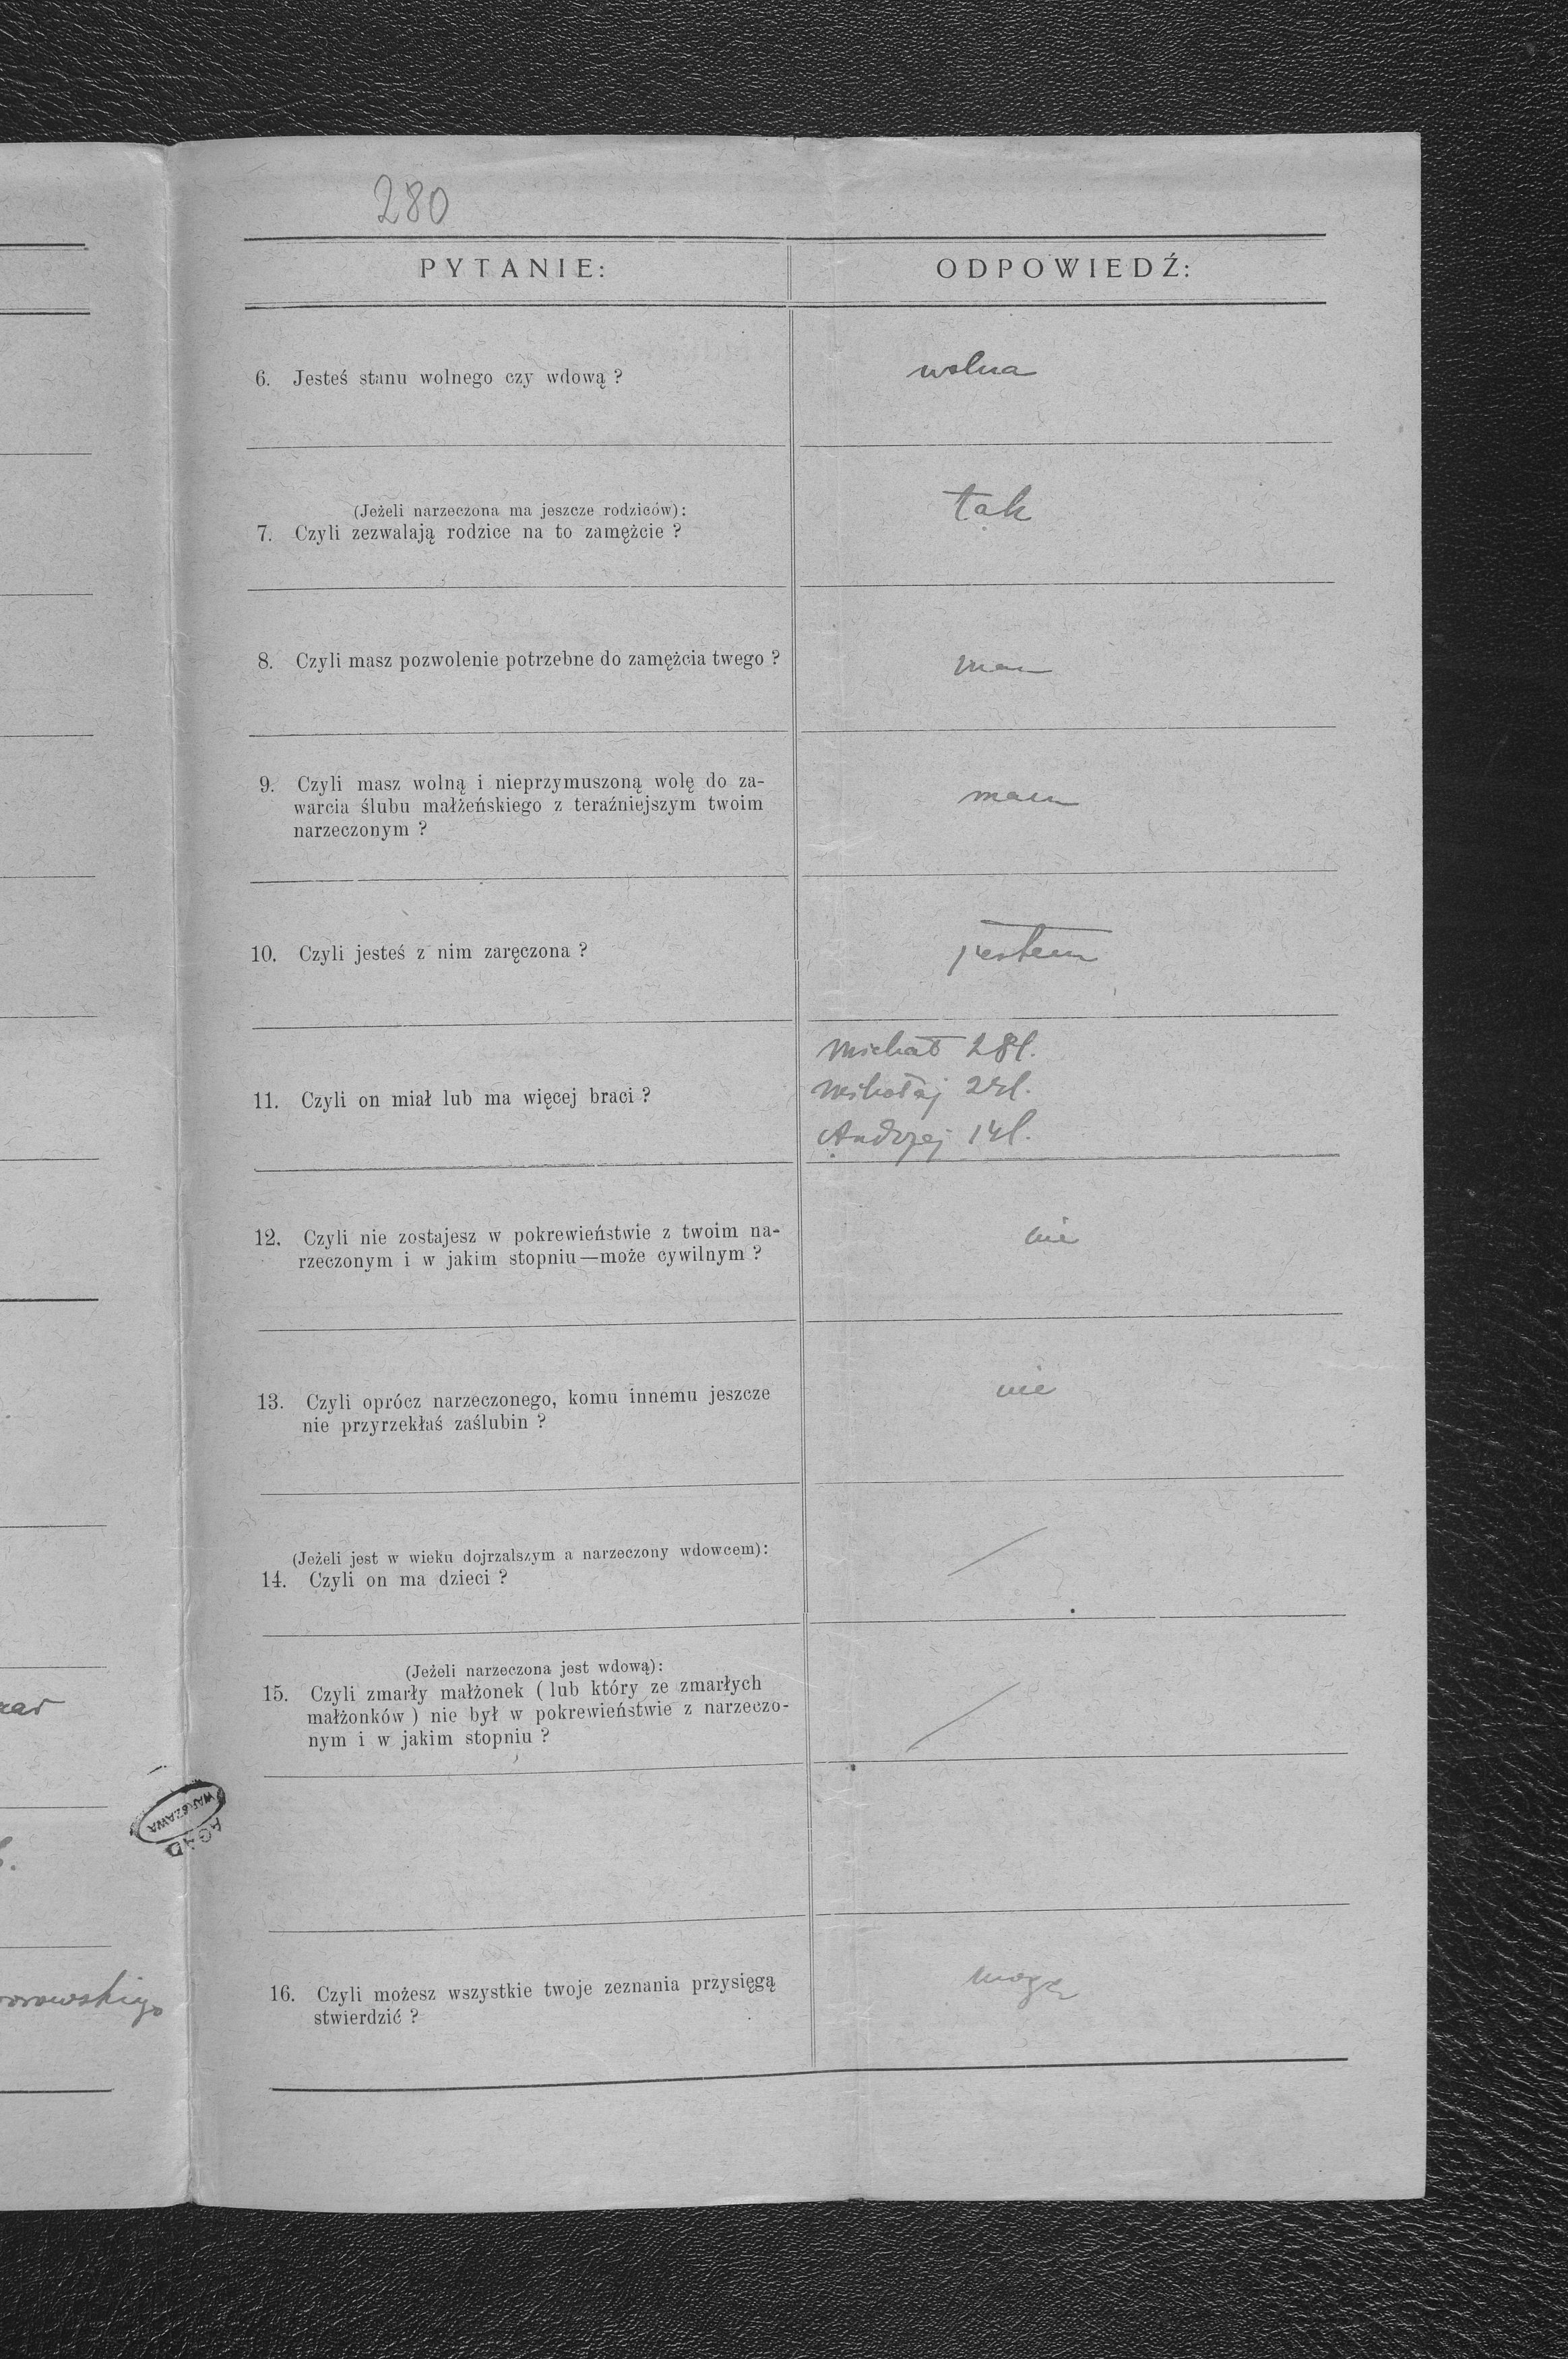 280
PYTANIE: ODPOWIEDŹ:
6. Jesteś stanu wolnego czy wdową ? wolna
(Jeżeli narzeczona ma jeszcze rodziców):
7. Czyli zezwalają rodzice na to zamężcie ? tak
8. Czyli masz pozwolenie potrzebne do zamężcia twego ? mam
9. Czyli masz wolną i nieprzymuszoną wolę do za-
warcia ślubu małżeńskiego z teraźniejszym twoim
narzeczonym ? mam
10. Czyli jesteś z nim zaręczona ? jestem
11. Czyli on miał lub ma więcej braci ?
Michał 28 l.
Mikołaj l.
Andrzej l.
12. Czyli nie zostajesz w pokrewieństwie z twoim na-
rzeczonym i w jakim stopniu—może cywilnym ? nie
13. Czyli oprócz narzeczonego, komu innemu jeszcze
nie przyrzekłaś zaślubin ? nie
(Jeżeli jest w wieku dojrzalszym a narzeczony wdowcem):
14. Czyli on ma dzieci ?
(Jeżeli narzeczona jest wdową):
15. Czyli zmarły małżonek ( lub który ze zmarłych
małżonków ) nie był w pokrewieństwie z narzeczo-
nym i w jakim stopniu ?
AGAD
WARSZAWA
16. Czyli możesz wszystkie twoje zeznania przysięgą
stwierdzić ? mogę